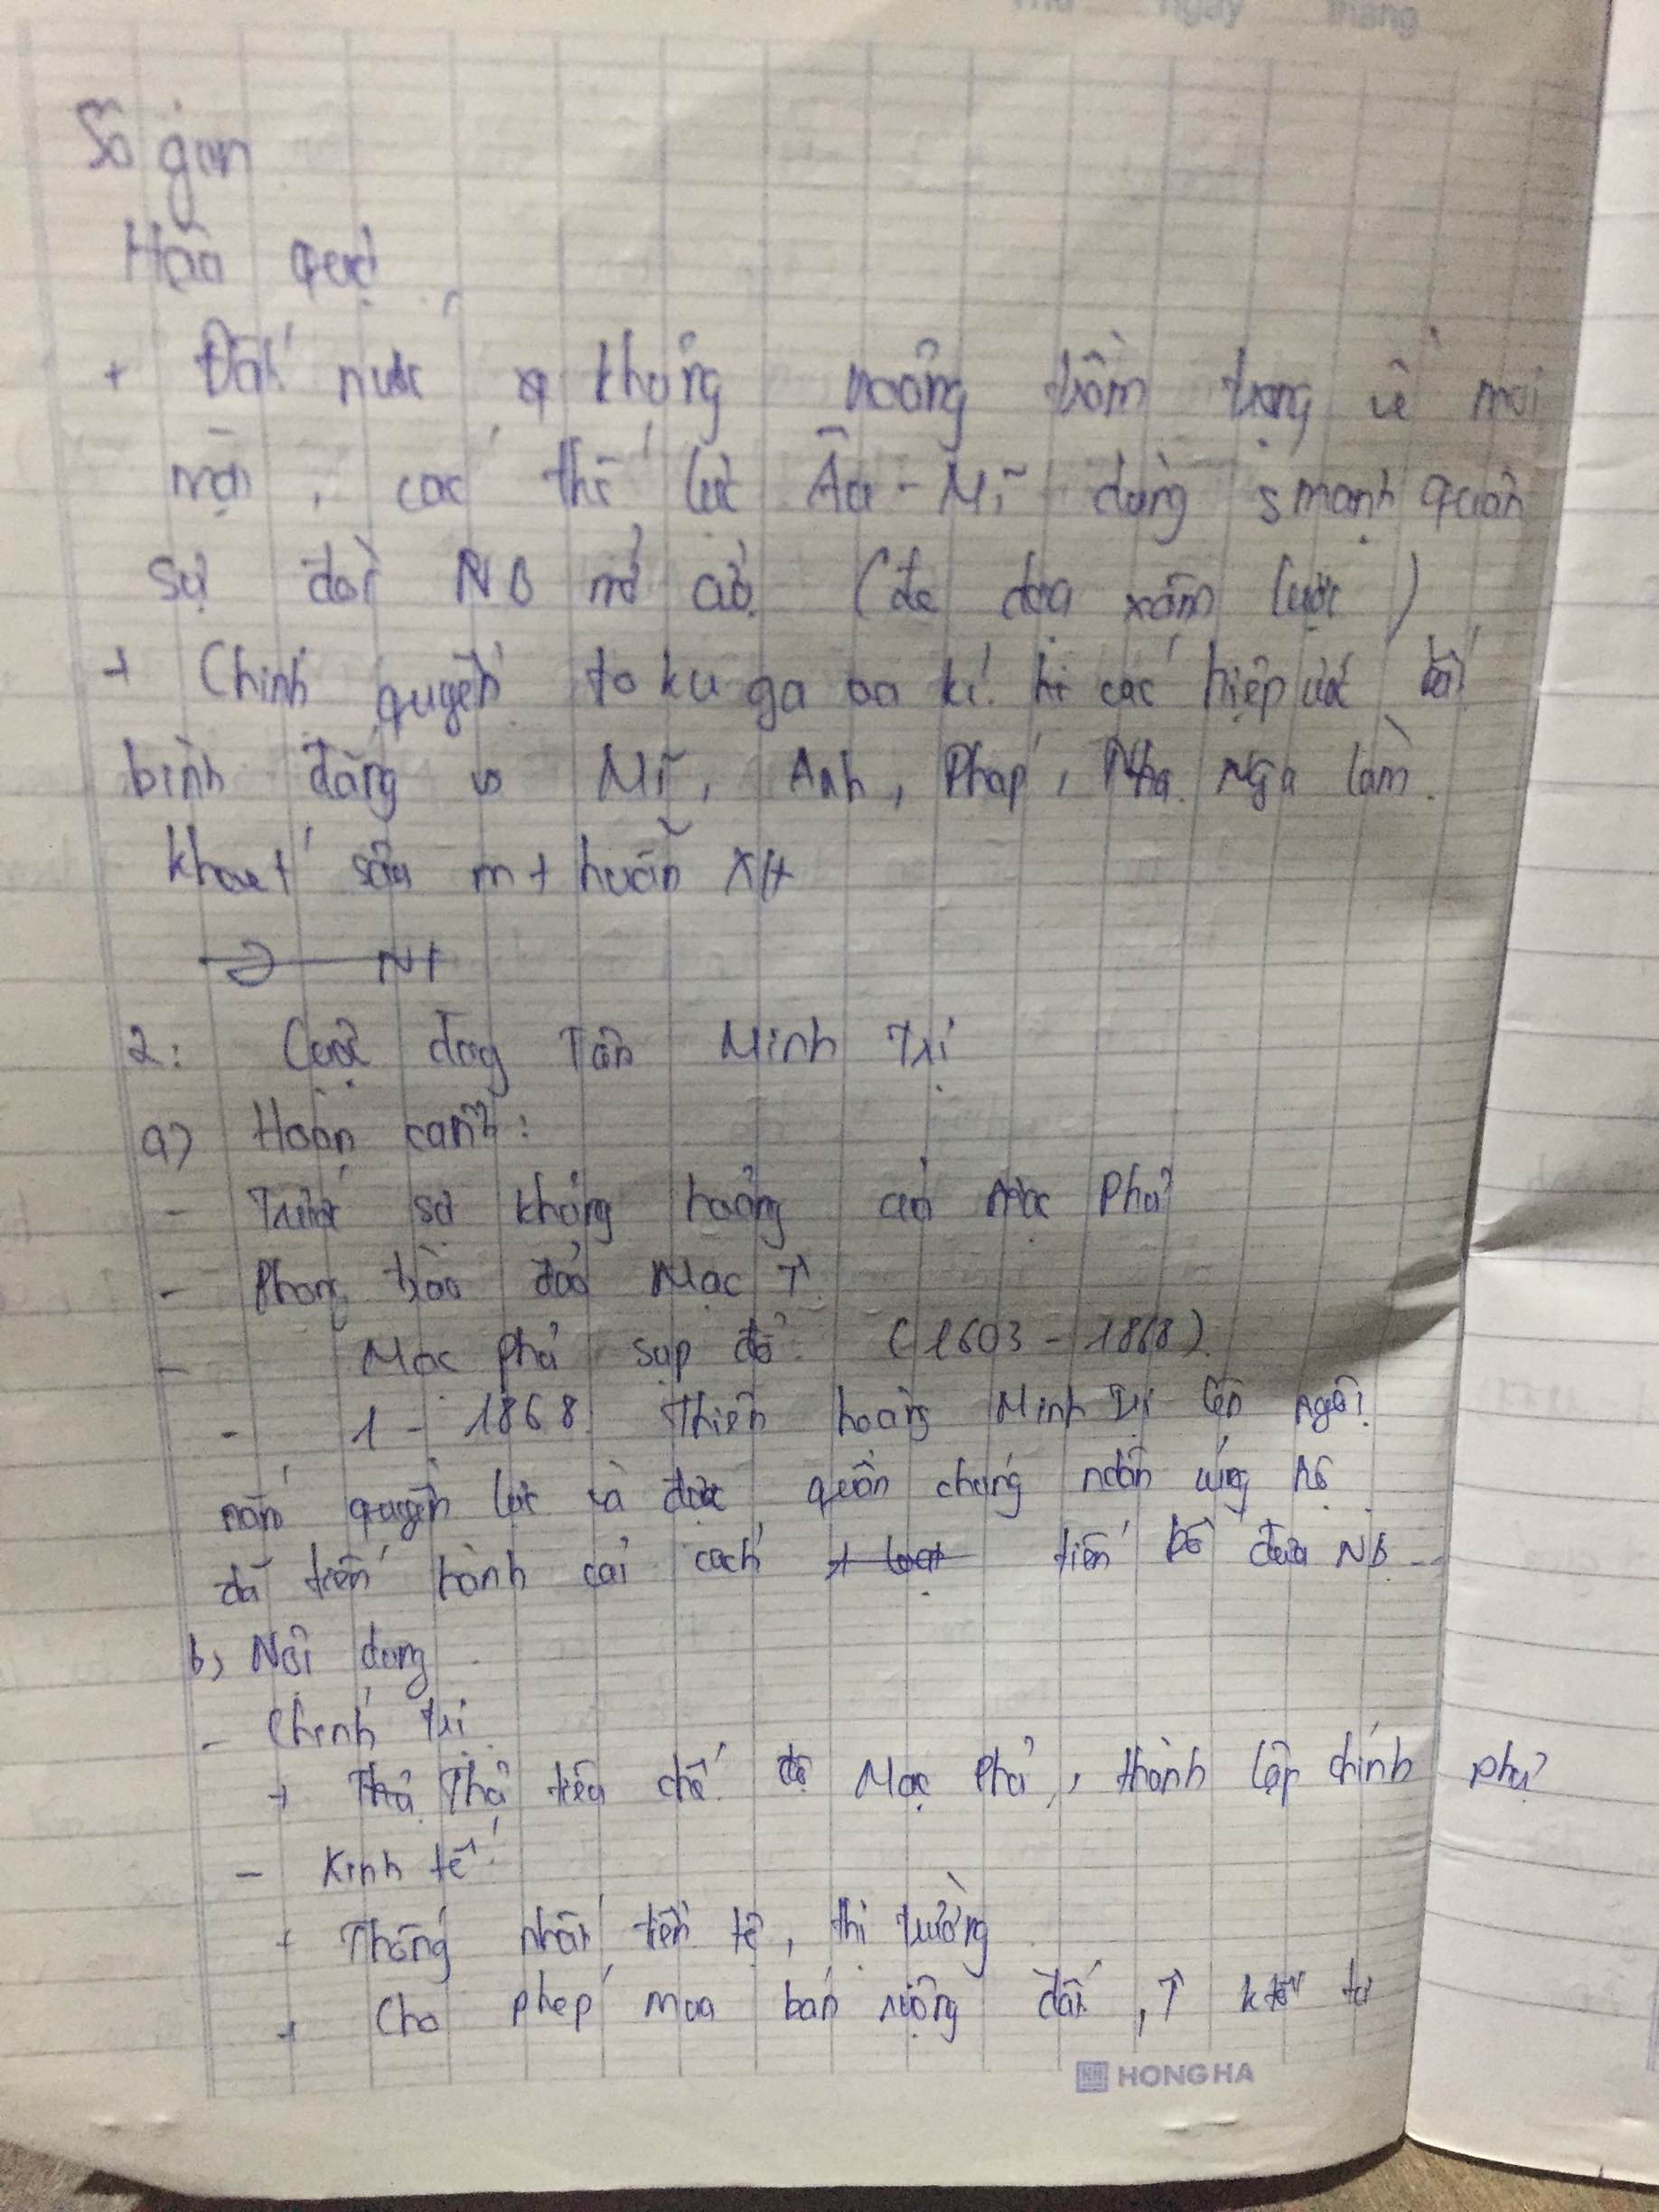 Thứ ngày tháng
Sô gun
Hậu quả
+ Đất nước khủng hoảng trầm trọng về mọi
mặt, các thế lực Âu - Mĩ dùng s mạnh quân
sự đòi NB mở cửa (đe dọa xâm lược)
+ Chính quyền to ku ga oa kí các hiệp ước bất
bình đẳng vs Mĩ, Anh, Pháp, Nga làm
khoét sâu m + huẫn XH
2: Cuộc duy Tân Minh Trị
a) Hoàn cảnh:
- Trước sự khủng hoảng của Mạc Phủ
- Phong trào đảo Mạc ↑
- Mạc phủ sụp đổ (1603 - 1868).
- 1 - 1868 Thiên hoàng Minh Trị lên ngôi
nắm quyền lực và được quần chúng ndân ủng hộ
đã tiến hành cải cách tiến bộ đưa NB ...
b, Nội dung
- Chính trị
+ Thủ tiêu chế độ Mạc Phủ, thành lập chính phủ
- Kinh tế
+ Thống nhất tiền tệ, thị trường
+ Cho phép mua bán ruộng đất, ↑ ktế tư
HONG HA